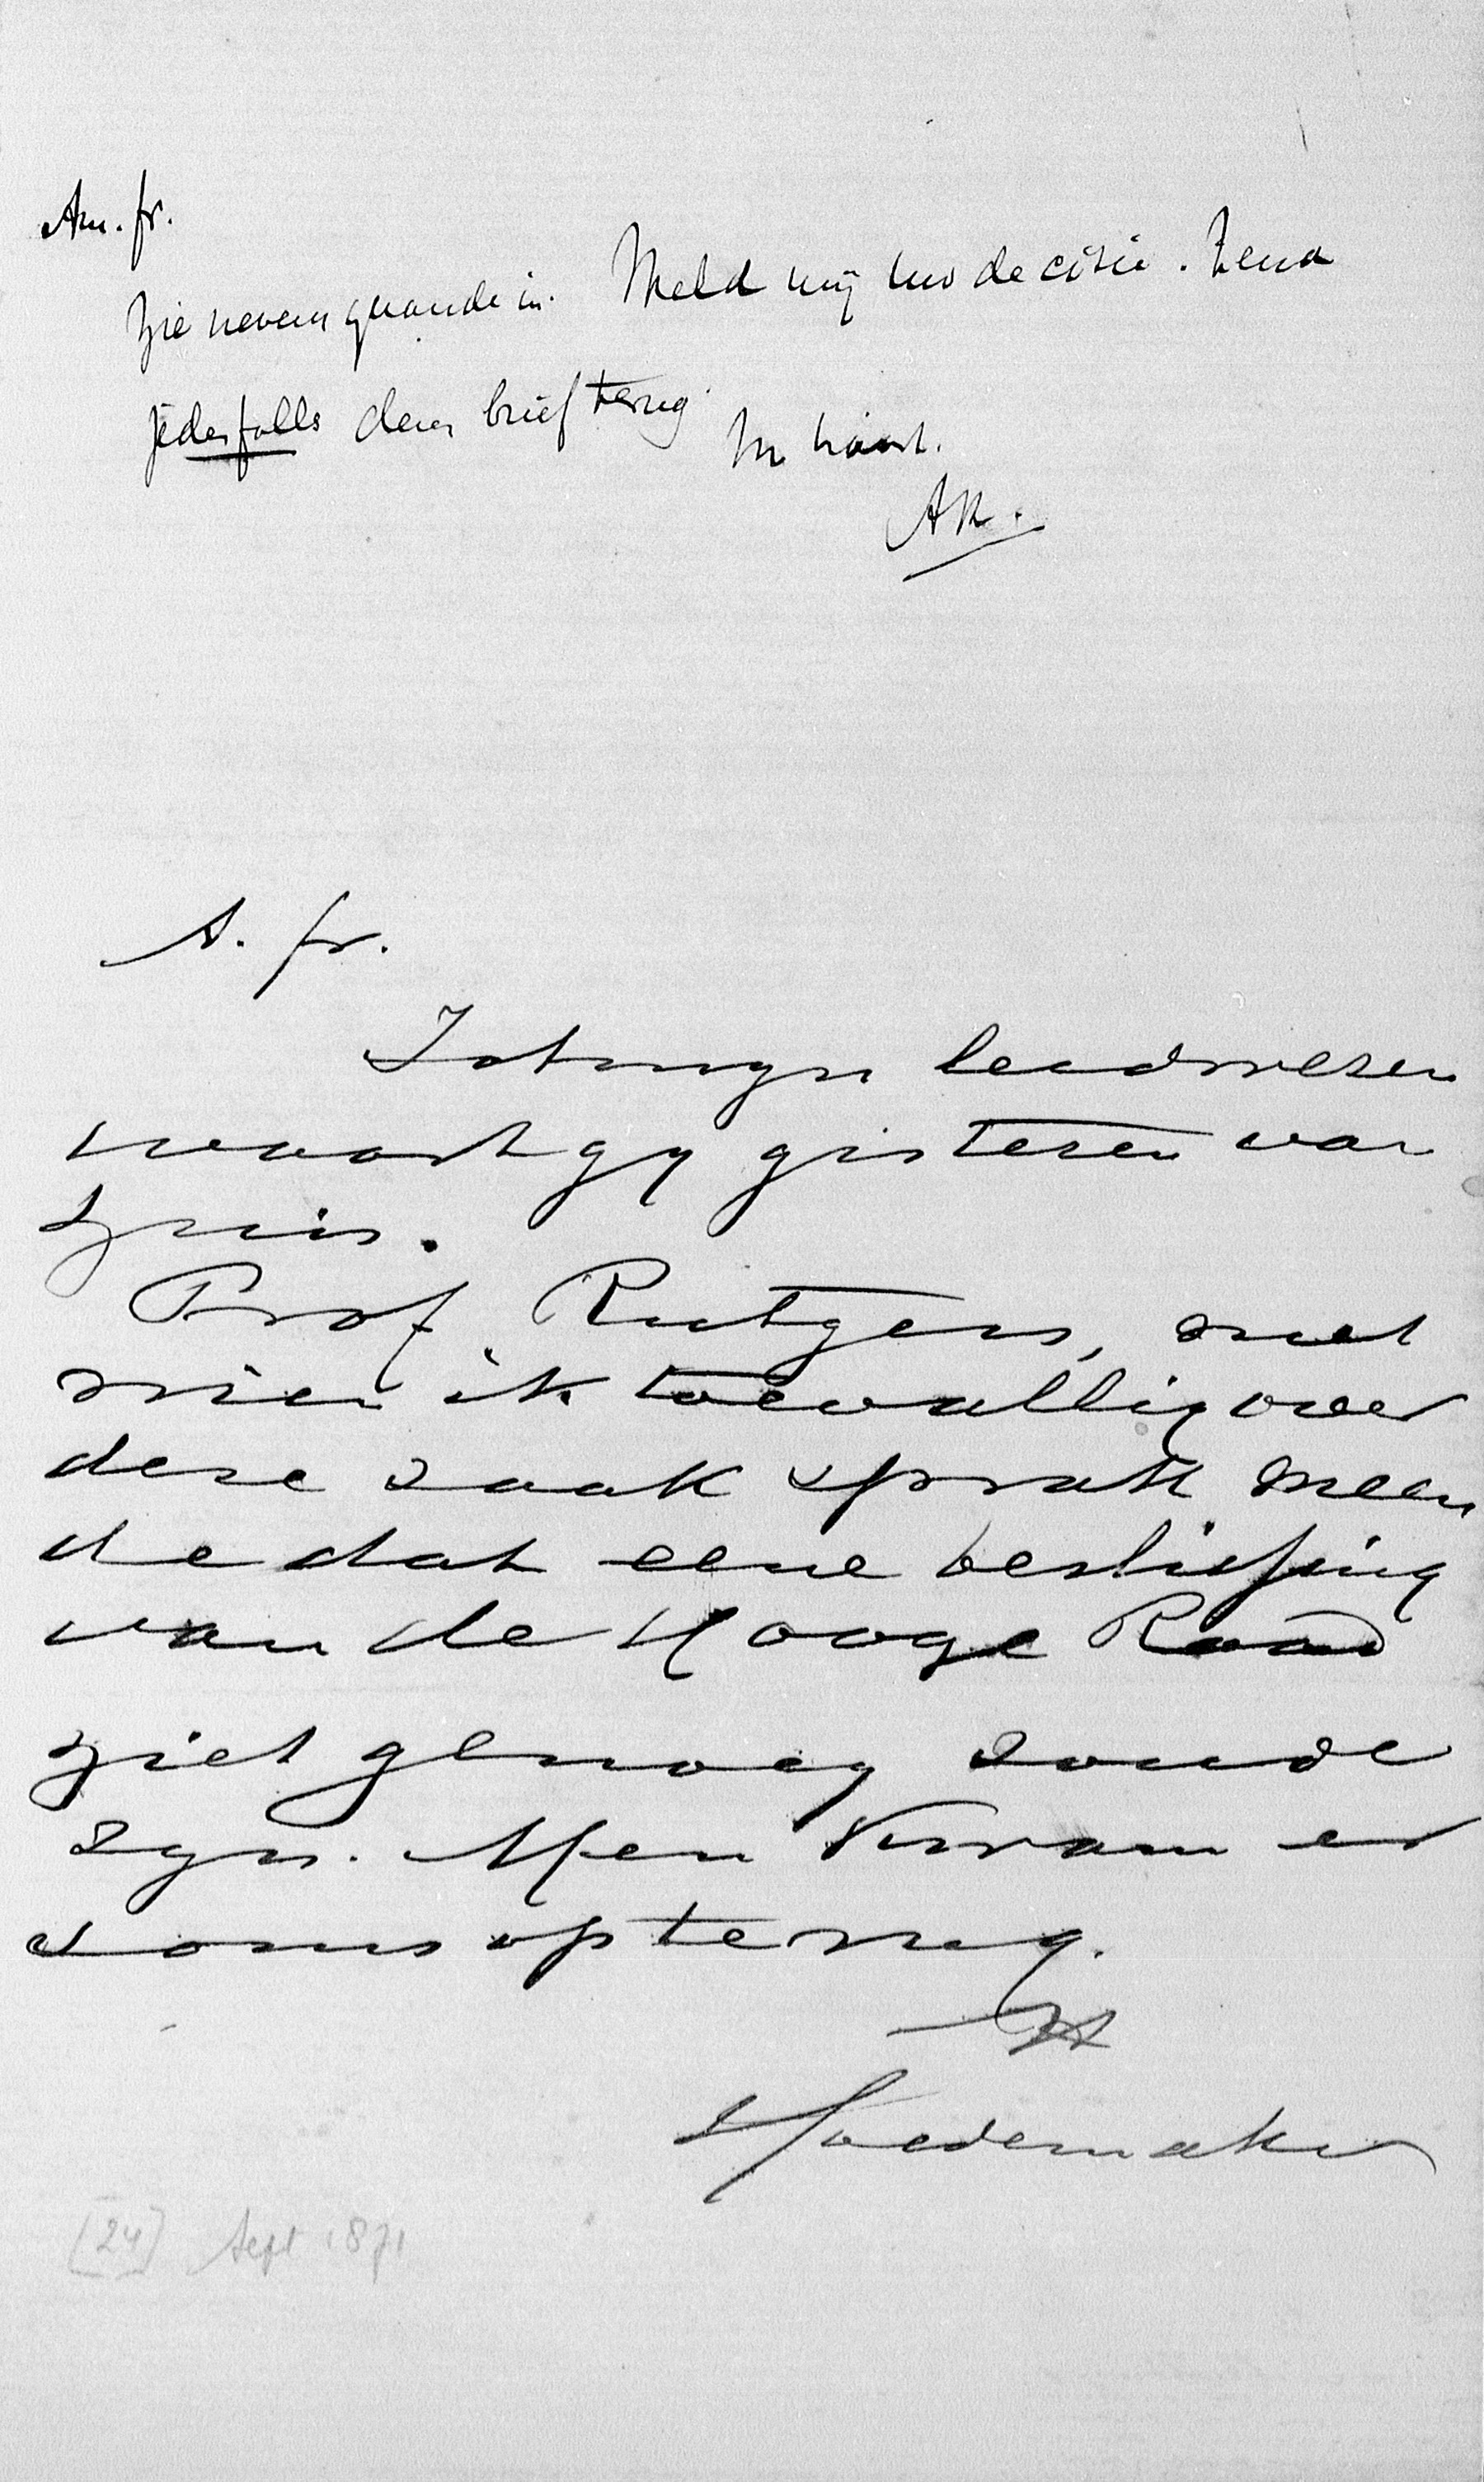 Am. fr.
Zie nevensgaande in. Meld mij uw decisie. Zend
jedesfalls den brief terug.
In haast.
AK.
A. fr.
Tot mijn leedwezen
waart gij gisteren van
huis.
Prof. Rutgers, met
wien ik toevallig over
deze zaak sprak meen
de dat eene beslissing
van de Hooge Raad
niet genoeg zoude
zijn. Men kwam er
soms op terug.
tt
Hoedemaker
[24] Sept 1871